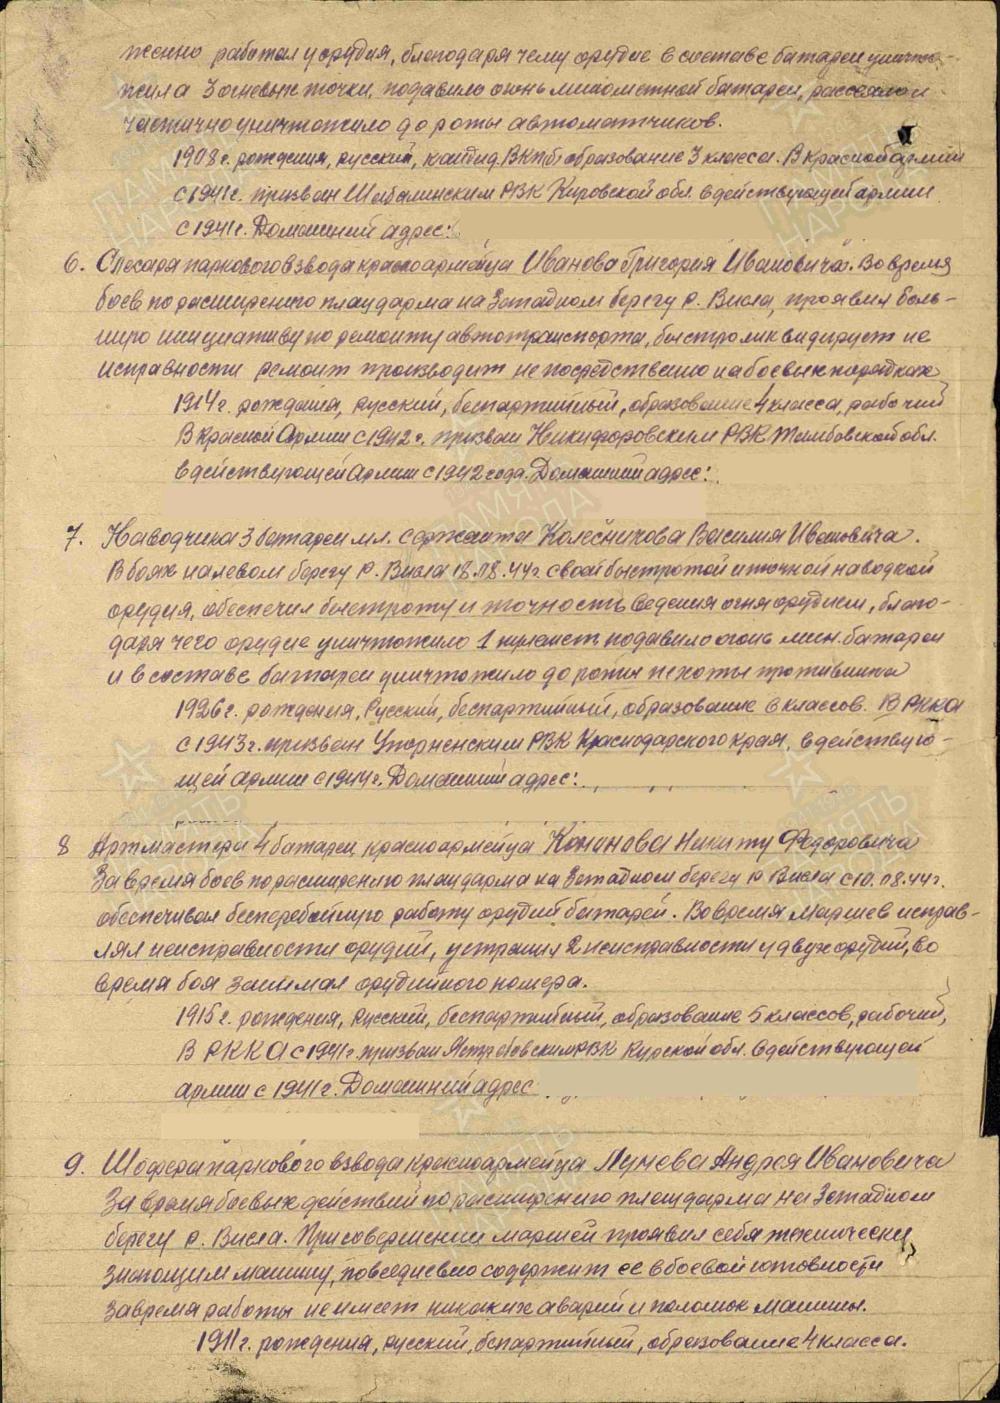 женно работал у орудия, благодаря чему орудие в составе батареи уничто-
жила 3 огневых точки, подавило огонь минометной батареи, рассеяло и
частично уничтожило до роты автоматчиков.
1908 г. рождения, русский, кандид. ВКП(б) образование 3 класса. В красной армии
с 1941 г. призван Шабалинским РВК Кировской обл. в действующей армии
с 1941 г. Домашний адрес:
6. Слесаря паркового взвода красноармейца Иванова Григория Ивановича. Во время
боев по расширению плацдарма на Западном берегу р. Висла, проявил боль-
шую инициативу по ремонту автотранспорта, быстро ликвидирует не
исправности ремонт производит непосредственно на боевых порядках
1914 г. рождения, русский, беспартийный, образование 4 класса, рабочий
В Красной Армии с 1942 г. призван Никифоровским РВК Тамбовской обл.
в действующей Армии с 1942 года. Домашний адрес:
7. Наводчика 3 батареи мл. сержанта Колесникова Василия Ивановича.
В боях на левом берегу р. Висла 18.08.44 г. своей быстротой и точной наводкой
орудия, обеспечил быстроту и точность ведения огня орудием, благо-
даря чего орудие уничтожило 1 пулемет подавило огонь мин. батареи
и в составе батареи уничтожило до роты пехоты противника
1926 г. рождения, Русский, беспартийный, образование 6 классов. В РККА
с 1943 г. призван Упорненским РВК Краснодарского края, в действую-
щей армии с 1944 г. Домашний адрес:
8 Артмастера 4 батареи, красноармейца Кононова Никиту Федоровича
За время боев по расширению плацдарма на Западном берегу р. Висла с 10.08.44 г.
обеспечивал бесперебойную работу орудий батареи. Во время маршев исправ-
лял неисправности орудий, устранил 2 неисправности у двух орудий, во
время боя занимал орудийного номера.
1915 г. рождения, Русский, беспартийный, образование 5 классов, рабочий,
В РККА с 1941 г. призван Ястребовским РВК Курской обл. в действующей
армии с 1941 г. Домашний адрес
9. Шофера паркового взвода красноармейца Лунева Андрея Ивановича
За время боевых действий по расширению плацдарма на Западном
берегу р. Висла. При совершении маршей проявил себя технически
знающим машину, повседневно содержит ее в боевой готовности
За время работы не имеет никаких аварий и поломок машины.
1911 г. рождения, русский, беспартийный, образование 4 класса.